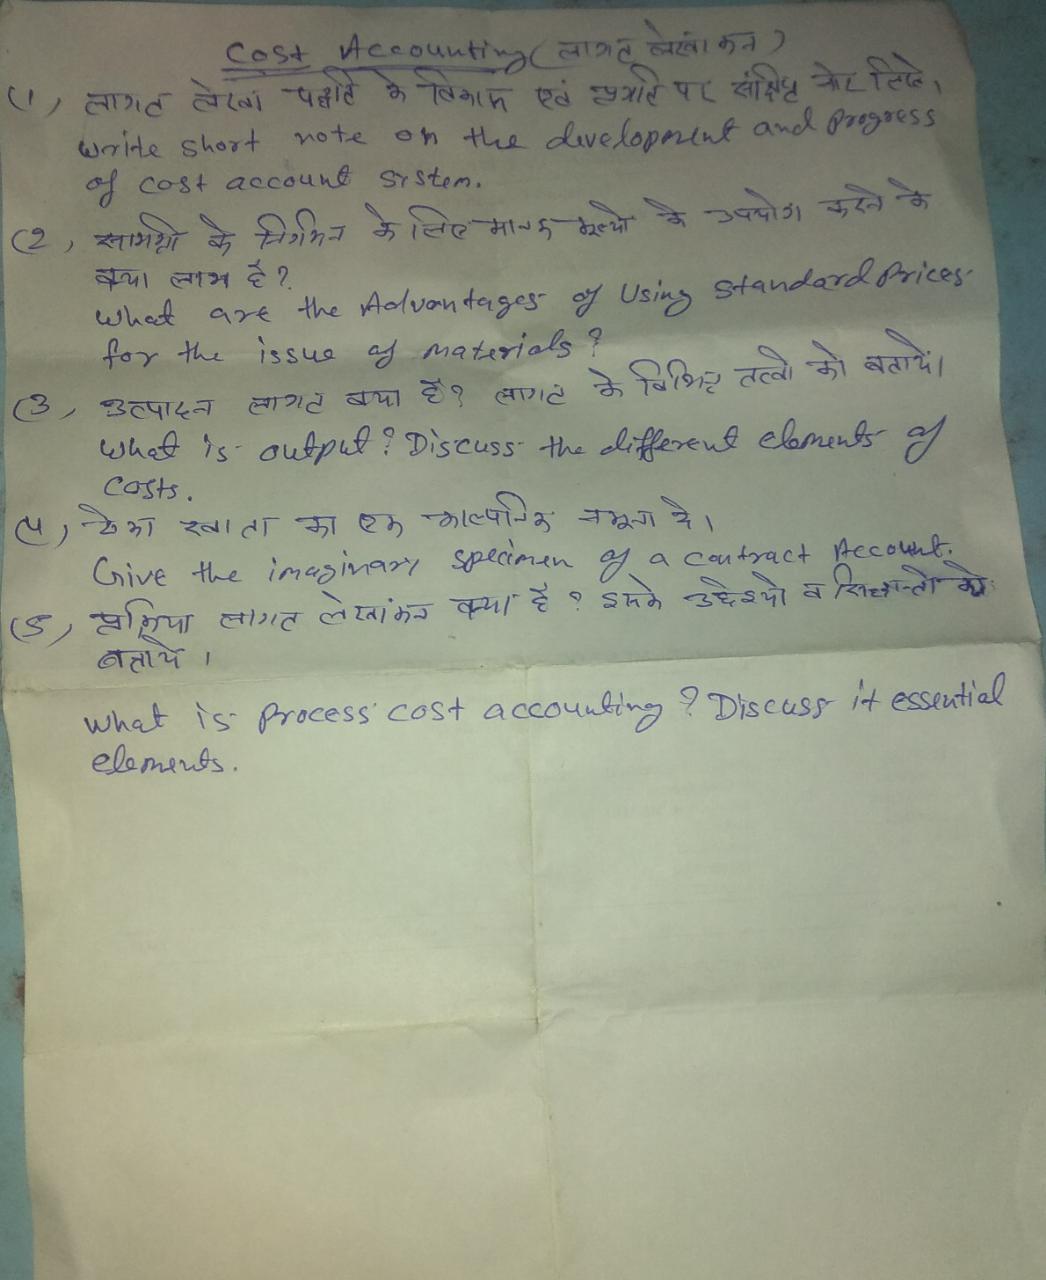 Cost Accounting (लागत लेखांकन)
(1) लागत लेखा पद्धति के विकास एवं प्रगति पर संक्षिप्त नोट लिखे।
Write short note on the development and progress
of cost account system.
(2) सामग्री के निर्गमन के लिए मानक मूल्यो के उपयोग करने के
क्या लाभ है?
What are the Advantages of Using Standard Prices
for the issue of materials?
(3) उत्पादन लागत क्या है? लागत के विभिन्न तत्वो को बतायें।
What is output? Discuss the different elements of
costs.
(4) ठेका खाता का एक काल्पनिक नमूना दे।
Give the imaginary specimen of a contract Account.
(5) प्रक्रिया लागत लेखांकन क्या है? इसके उद्देश्यो व सिद्धान्तो को
बतायें।
What is Process cost accounting? Discuss it essential
elements.